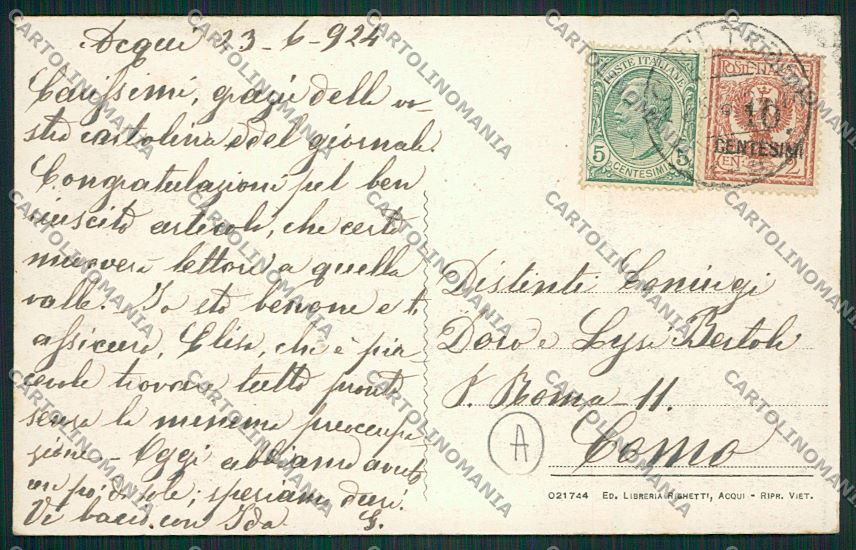 Acqui 23-6-924
Carissimi, grazie della vo-
stra cartolina e del giornale.
Congratulazioni pel ben
riuscito articolo, che certo
muoverà lettori a quella
valle. Io sto benone e ti
assicuro, Elisa, che è pia
cevole trovare tutto pronto
senza la minima preoccupa
zione. - Oggi abbiamo avuto
un po' di sole; speriamo duri.
Vi bacio con Ida
G.
POSTE ITALIANE
5 CENTESIMI 5
10
CENTESIMI
Distinti Coniugi
Doro e Lysi Bertoli
V. Roma - 11.
Como
A
021744 ED. LIBRERIA RIGHETTI, ACQUI - RIPR. VIET.
CARTOLINOMANIA